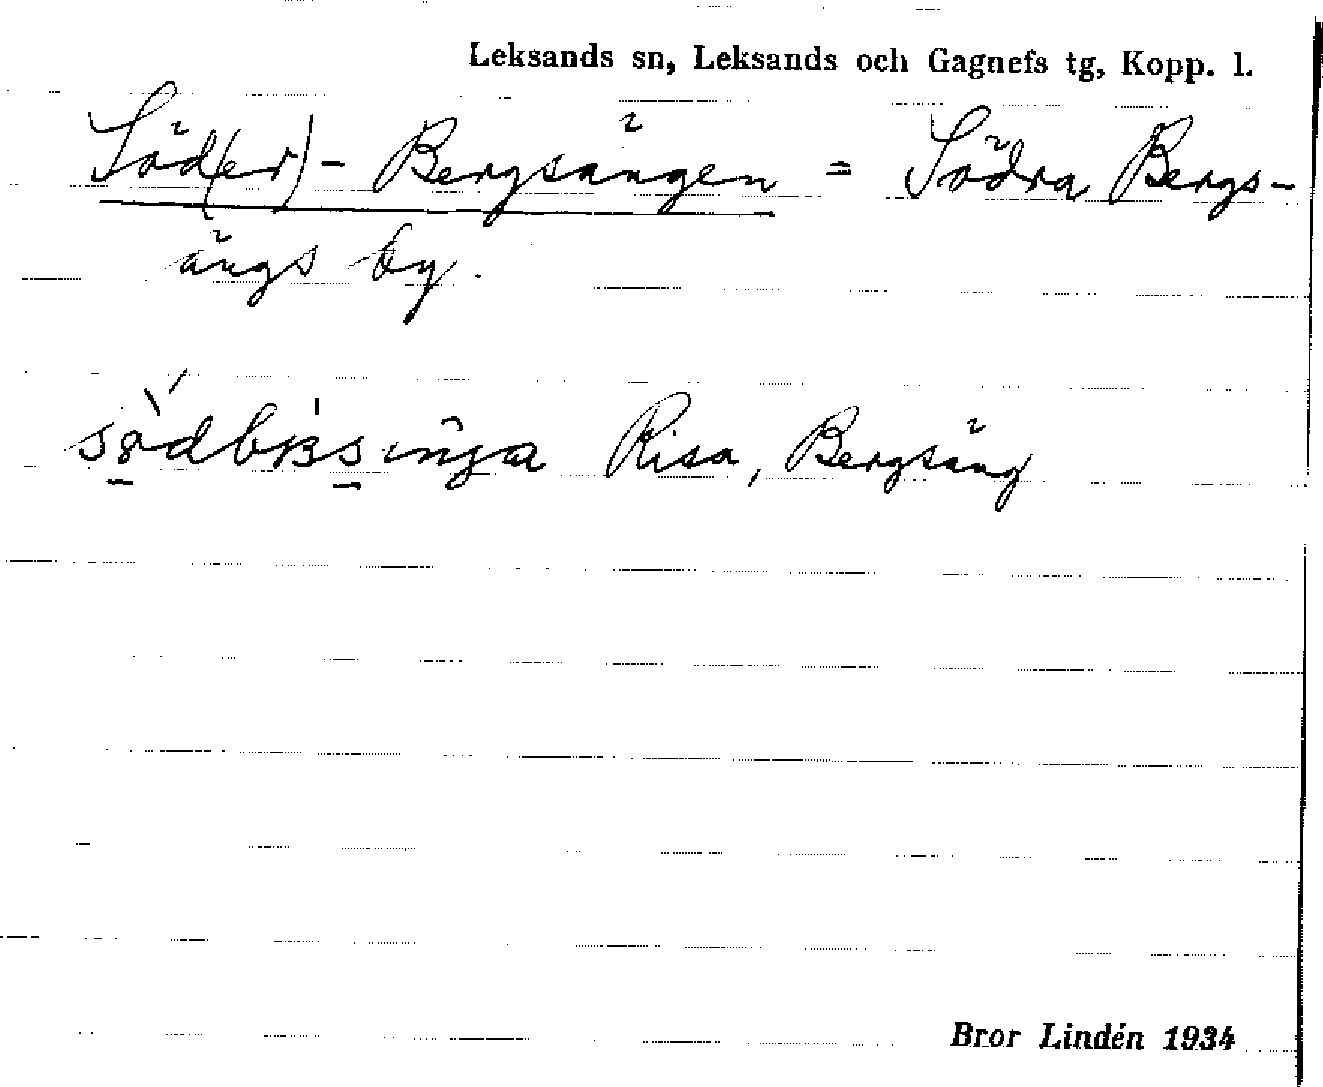 Leksands sn, Leksands och Gagnefs tg, Kopp. l.
Söd(er)- Bergsängen = Södra Bergs-
ängs by.
Risa, Bergsäng
Bror Lindén 1934